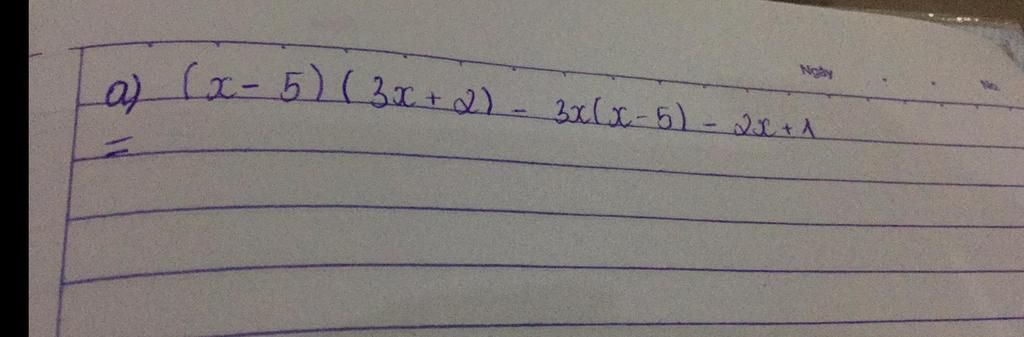 Ngày . . No.
a) (x - 5) (3x + 2) - 3x(x - 5) - 2x + 1
=